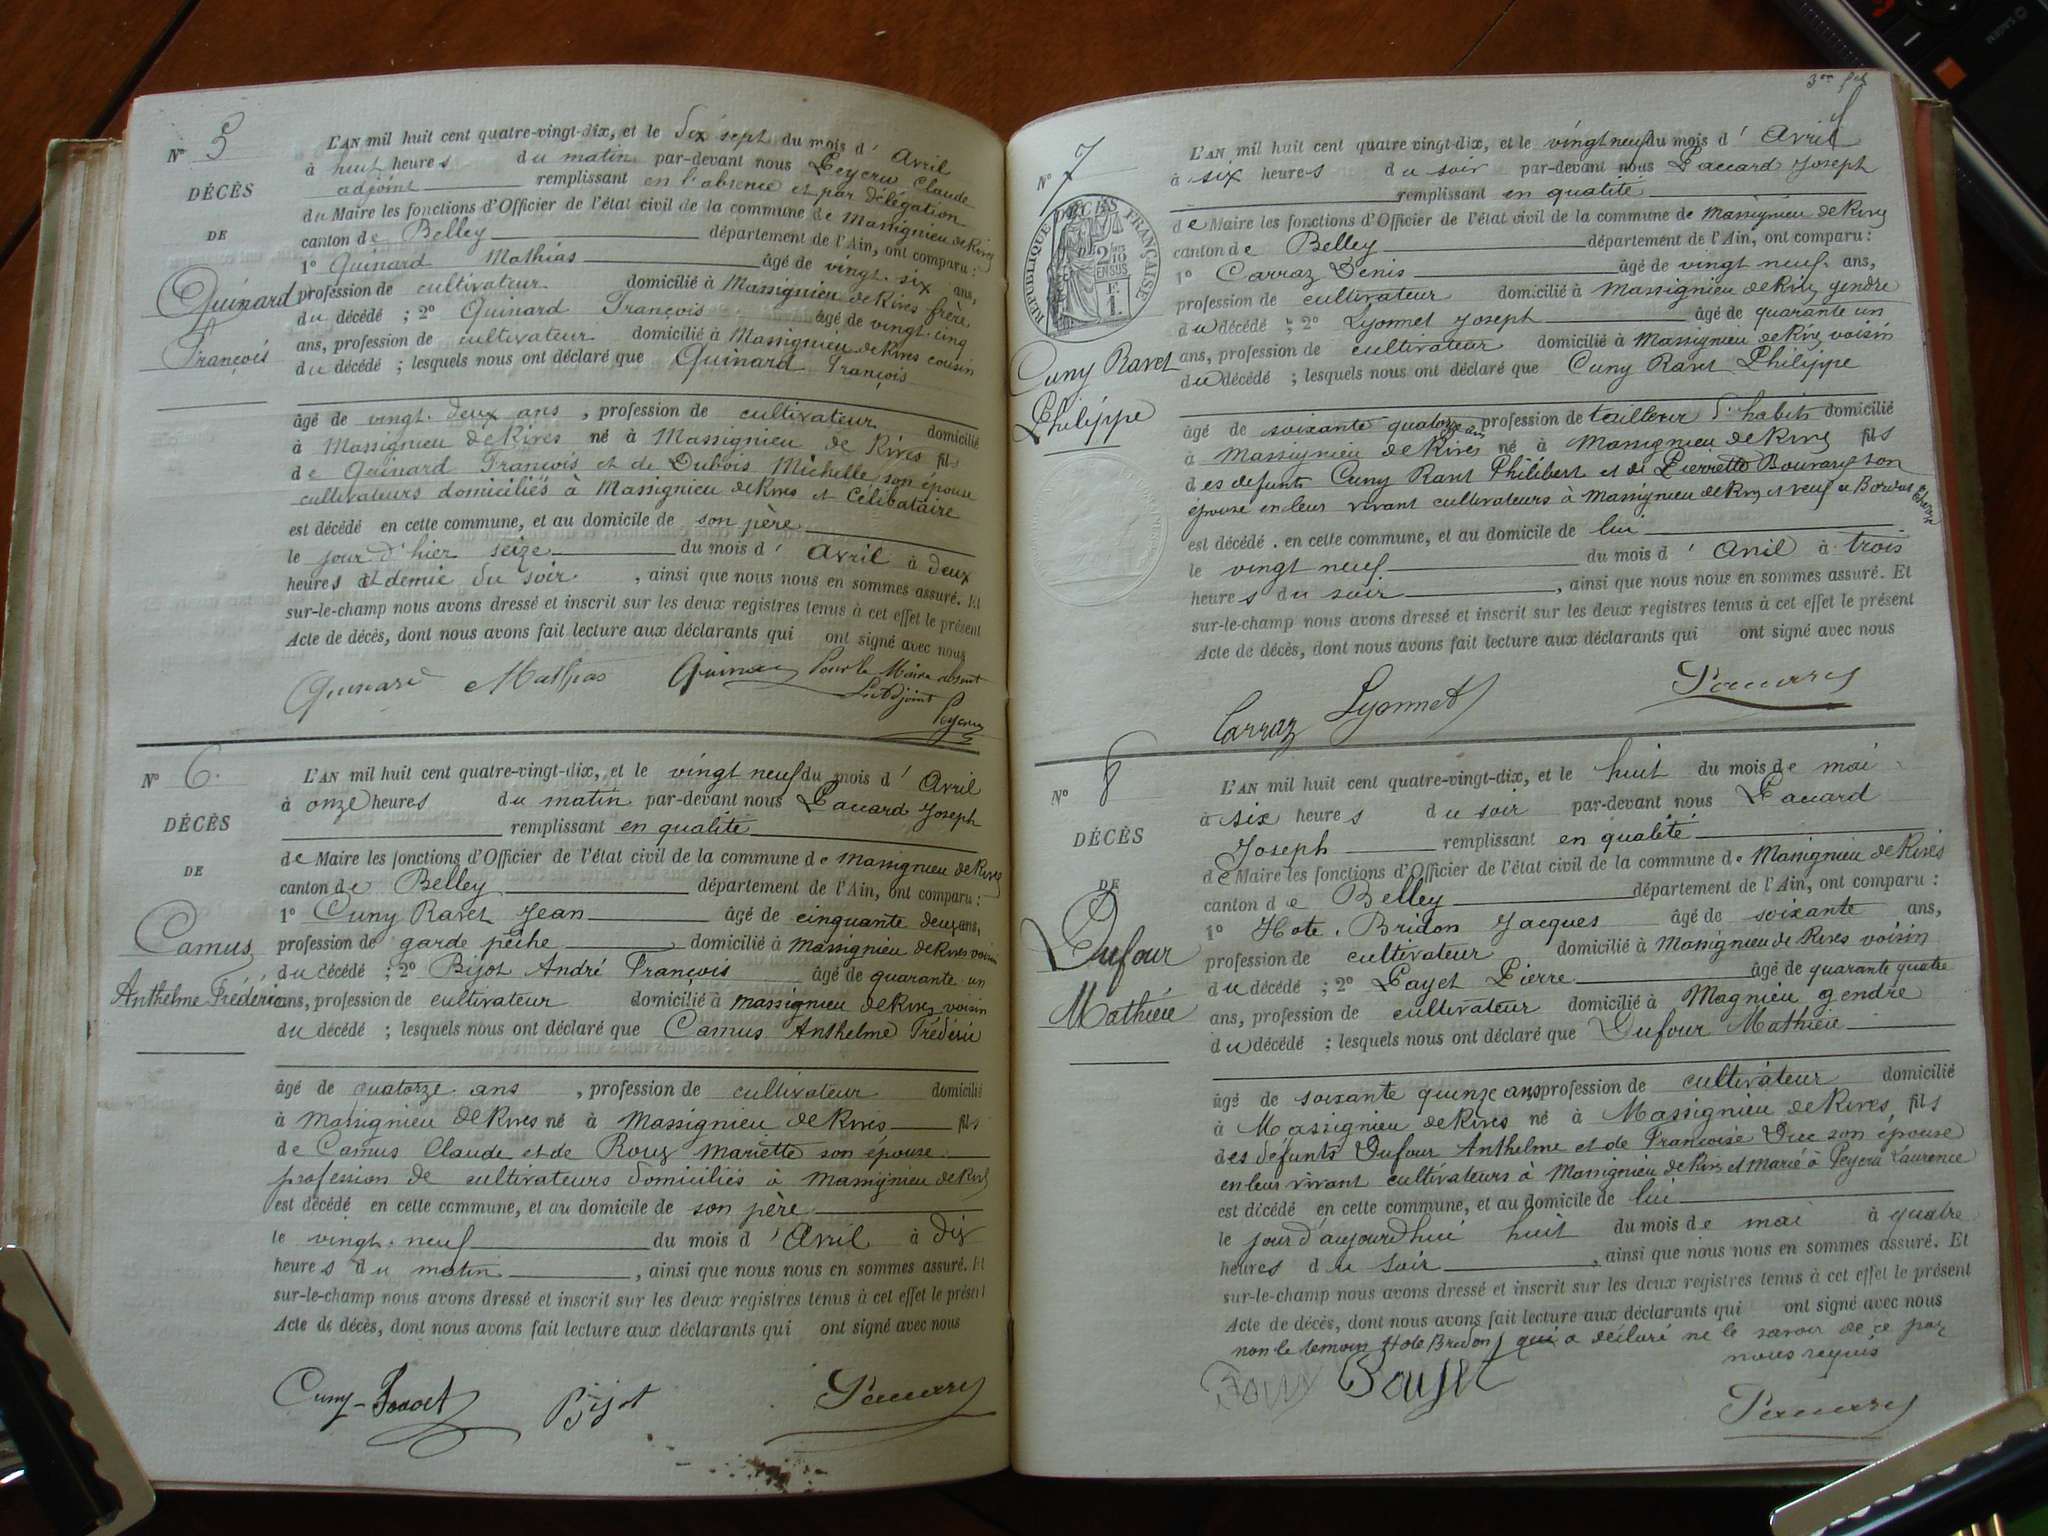 N° 5
DÉCÈS
DE
Guinard
François
L'AN mil huit cent quatre-vingt-dix, et le dix sept du mois d' Avril
à huit heures du matin par-devant nous Peycru Claude
adjoint remplissant en l'absence et par délégation
du Maire les fonctions d'Officier de l'état civil de la commune de Massignieu de Rives
canton de Belley département de l'Ain, ont comparu :
1° Guinard Mathias âgé de vingt six ans,
profession de cultivateur domicilié à Massignieu de Rives frère
du décédé ; 2° Guinard François âgé de vingt-cinq
ans, profession de cultivateur domicilié à Massignieu de Rives cousin
du décédé ; lesquels nous ont déclaré que Guinard François
âgé de vingt-deux ans , profession de cultivateur domicilié
à Massignieu de Rives né à Massignieu de Rives fils
de Guinard François et de Dubois Michelle son épouse
cultivateurs domiciliés à Massignieu de Rives et Célibataire
est décédé en cette commune, et au domicile de son père
le jour d'hier seize du mois d' Avril à deux
heures et demie du soir , ainsi que nous nous en sommes assuré. Et
sur-le-champ nous avons dressé et inscrit sur les deux registres tenus à cet effet le présent
Acte de décès, dont nous avons fait lecture aux déclarants qui ont signé avec nous
Guinard Mathias Guinard Pour le Maire absent
L'Adjoint
Peycru
N° 6.
DÉCÈS
DE
Camus
Anthelme Frédéric
L'AN mil huit cent quatre-vingt-dix, et le vingt neuf du mois d' Avril
à onze heures du matin par-devant nous Paccard Joseph
remplissant en qualité
de Maire les fonctions d'Officier de l'état civil de la commune de Massignieu de Rives
canton de Belley département de l'Ain, ont comparu :
1° Cuny Ravet Jean âgé de cinquante deux ans,
profession de garde pêche domicilié à Massignieu de Rives voisin
du décédé ; 2° Bijot André François âgé de quarante un
ans, profession de cultivateur domicilié à Massignieu de Rives voisin
du décédé ; lesquels nous ont déclaré que Camus Anthelme Frédéric
âgé de quatorze ans , profession de cultivateur domicilié
à Massignieu de Rives né à Massignieu de Rives fils
de Camus Claude et de Roux Mariette son épouse
profession de cultivateurs domiciliés à Massignieu de Rives
est décédé en cette commune, et au domicile de son père
le vingt-neuf du mois d' Avril à dix
heures du matin , ainsi que nous nous en sommes assuré. Et
sur-le-champ nous avons dressé et inscrit sur les deux registres tenus à cet effet le présent
Acte de décès, dont nous avons fait lecture aux déclarants qui ont signé avec nous
Cuny-Ravet Bijot Paccard J
N° 7
RÉPUBLIQUE FRANÇAISE
DÉCÈS
2/10 EN SUS
1 F.
Cuny Ravet
Philippe
L'AN mil huit cent quatre-vingt-dix, et le vingt neuf du mois d' Avril
à six heures du soir par-devant nous Paccard Joseph
remplissant en qualité
de Maire les fonctions d'Officier de l'état civil de la commune de Massignieu de Rives
canton de Belley département de l'Ain, ont comparu :
1° Carraz Denis âgé de vingt neuf ans,
profession de cultivateur domicilié à Massignieu de Rives gendre
du décédé ; 2° Lyonnet Joseph âgé de quarante un
ans, profession de cultivateur domicilié à Massignieu de Rives voisin
du décédé ; lesquels nous ont déclaré que Cuny Ravet Philippe
âgé de soixante quatorze ans profession de tailleur d'habits domicilié
à Massignieu de Rives né à Massignieu de Rives fils
des defunts Cuny Ravet Philibert et de Pierrette Bouvard son
épouse en leur vivant cultivateurs à Massignieu de Rives et veuf de
est décédé en cette commune, et au domicile de lui
le vingt neuf du mois d' Avril à trois
heures du soir , ainsi que nous nous en sommes assuré. Et
sur-le-champ nous avons dressé et inscrit sur les deux registres tenus à cet effet le présent
Acte de décès, dont nous avons fait lecture aux déclarants qui ont signé avec nous
Carraz Lyonnet Paccard J
N° 8
DÉCÈS
DE
Dufour
Mathieu
L'AN mil huit cent quatre-vingt-dix, et le huit du mois de mai
à six heures du soir par-devant nous Paccard
Joseph remplissant en qualité
de Maire les fonctions d'Officier de l'état civil de la commune de Massignieu de Rives
canton de Belley département de l'Ain, ont comparu :
1° Hote-Bridon Jacques âgé de soixante ans,
profession de cultivateur domicilié à Massignieu de Rives voisin
du décédé ; 2° Payet Pierre âgé de quarante quatre
ans, profession de cultivateur domicilié à Magnieu gendre
du décédé ; lesquels nous ont déclaré que Dufour Mathieu
âgé de soixante quinze ans profession de cultivateur domicilié
à Massignieu de Rives né à Massignieu de Rives fils
des défunts Dufour Anthelme et de Françoise Duc son épouse
en leur vivant cultivateurs à Massignieu de Rives et marié à Peycru Laurence
est décédé en cette commune, et au domicile de lui
le jour d'aujourd'hui huit du mois de mai à quatre
heures du soir , ainsi que nous nous en sommes assuré. Et
sur-le-champ nous avons dressé et inscrit sur les deux registres tenus à cet effet le présent
Acte de décès, dont nous avons fait lecture aux déclarants qui ont signé avec nous
non le temoin Hote Bridon qui a déclaré ne le savoir de ce par
nous requis
Payet
Paccard J